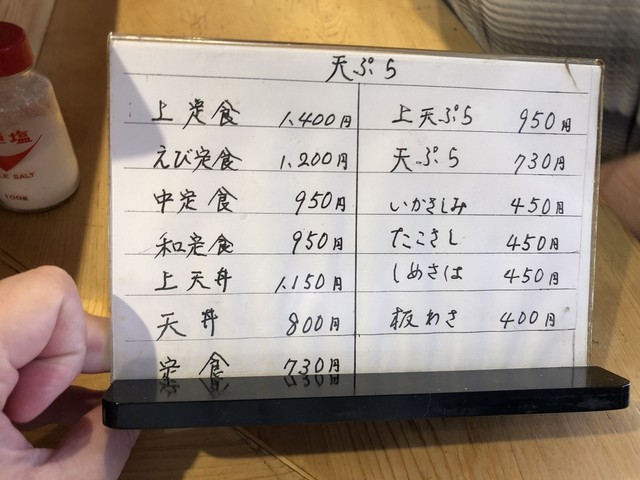 天ぷら
上定食 1,400円
えび定食 1,200円
中定食 950円
和定食 950円
上天丼 1,150円
天丼 800円
定食 730円
上天ぷら 950円
天ぷら 730円
いかさしみ 450円
たこさし 450円
しめさば 450円
板わさ 400円
塩
LE SALT
100g